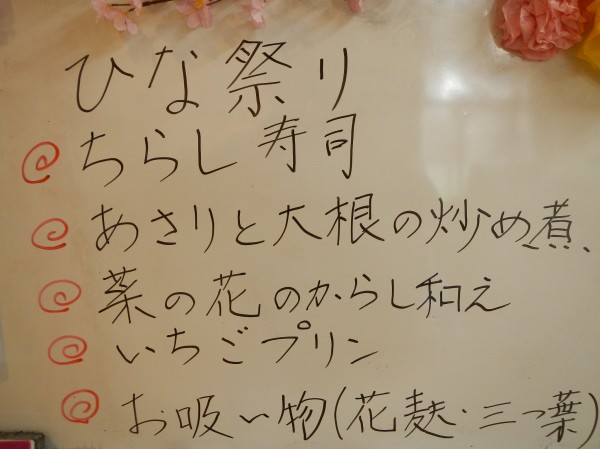 ひな祭り
ちらし寿司
あさりと大根の炒め煮
菜の花のからし和え
いちごプリン
お吸い物(花麸・三つ葉)